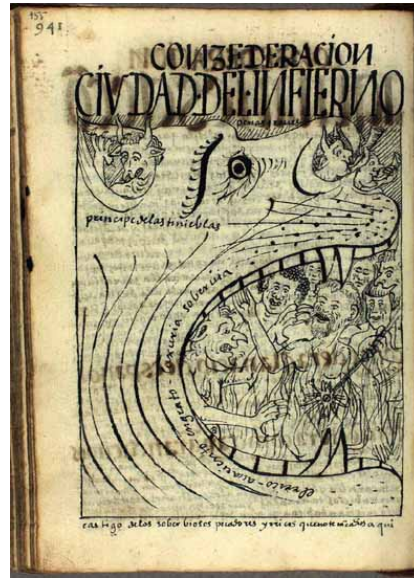 941
CONZEDERACION
CIVDAD·DEL·INFIERNO
penas graues
principe delas tinieblas
el rrico - auariento engrato - luxuria soberuia
castigo delos soberbiosos pecadores y rricos que no